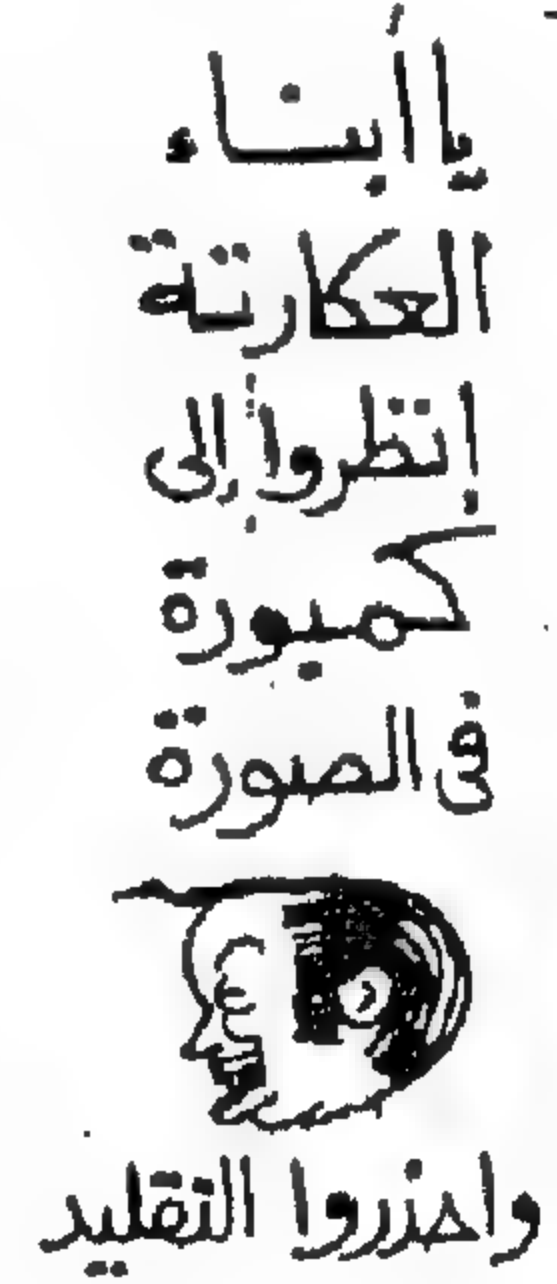 يا أبناء
العكارتة
انظروا إلى
كمبورة
فى الصورة
واحذروا التقليد